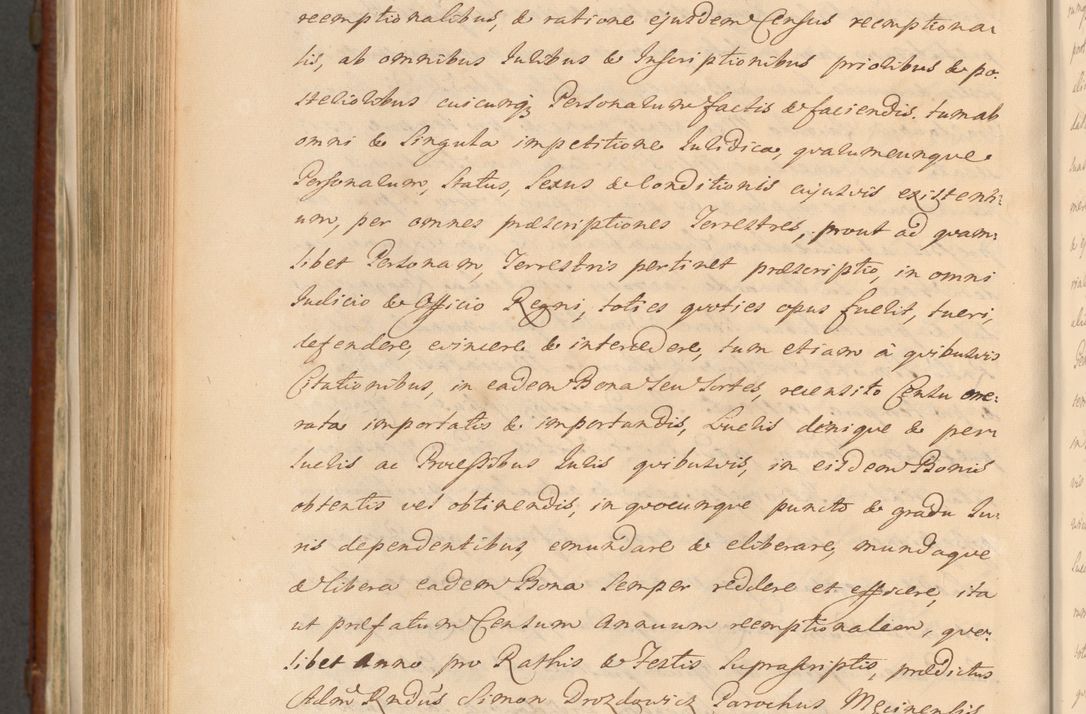 reemptionalibus, & ratione ejusdem Census reemptiona-
lis, ab omnibus Iuribus & Inscriptionibus prioribus & po-
sterioribus cuicunq3 Personarum factis & faciendis. tum ab
omni & singula impetitione Iuridica, quarumcunque
Personarum, Status, Sexus & Conditionis cujusvis existenti:
um, per omnes præscriptiones Terrestres, prout ad quam:
libet Personam, Terrestris pertinet præscriptio, in omni
Iudicio & Officio Regni, toties quoties opus fuerit, tueri,
defendere, evincere & intercedere, tum etiam à quibusvis
Citationibus, in eadem Bona seu Sortes, recensito Censu one:
rata importatis & importandis, Lucris denique & per
lucris ac Processibus Iuris quibusvis, in eisdem Bonis
obtentis vel obtinendis, in quocunque puncto & gradu Iu-
ris dependentibus, emundare & eliberare, mundaque
& libera eadem Bona semper reddere et efficere, ita
ut præfatum Censum Annuum reemptionalem, quo:
libet Anno pro Rathis & Festis Suprascriptis, prædictus
Adm: Rndus Simon Drozdowicz Parochus Mecinensis